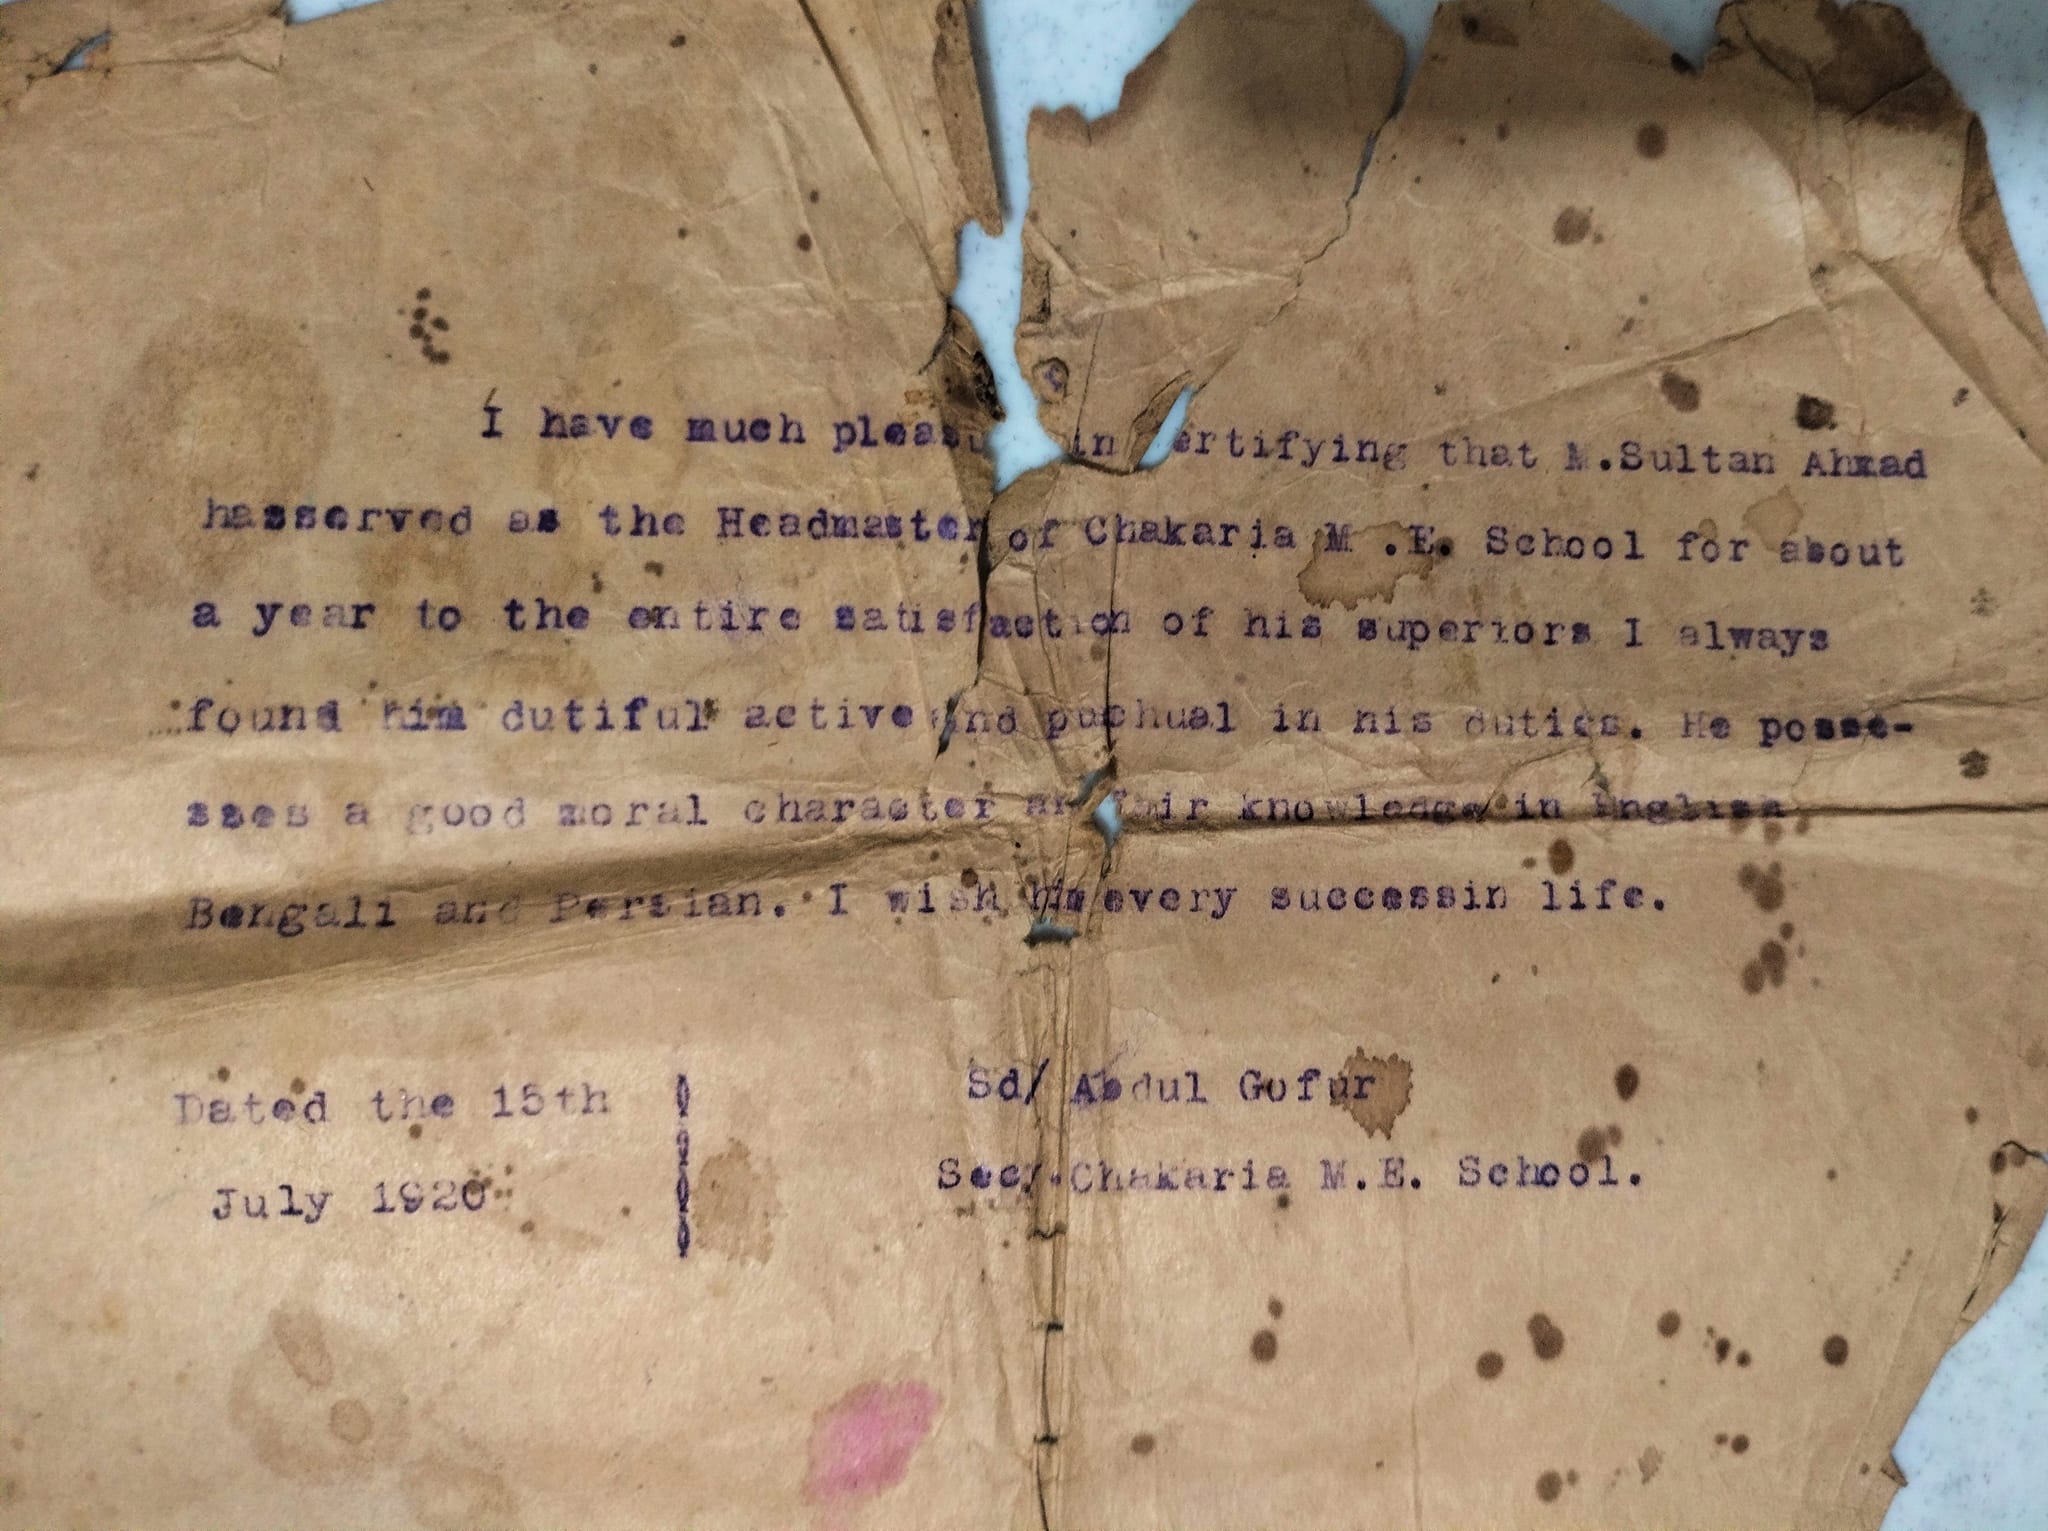 I have much in that M.Sultan Ahmad
hasserved as the Headmaster of Chakaria M .E. School for about
a year to the entire satisfaction of his superiors I always
found him dutiful active and puchual in his duties. He posse-
sses a good moral character fair knowledge in English
Bengali and Persian. I wish him every successin life.
Dated the 15th
July 1920
Sd/ Abdul Gofur
Secy.Chakaria M.E. School.